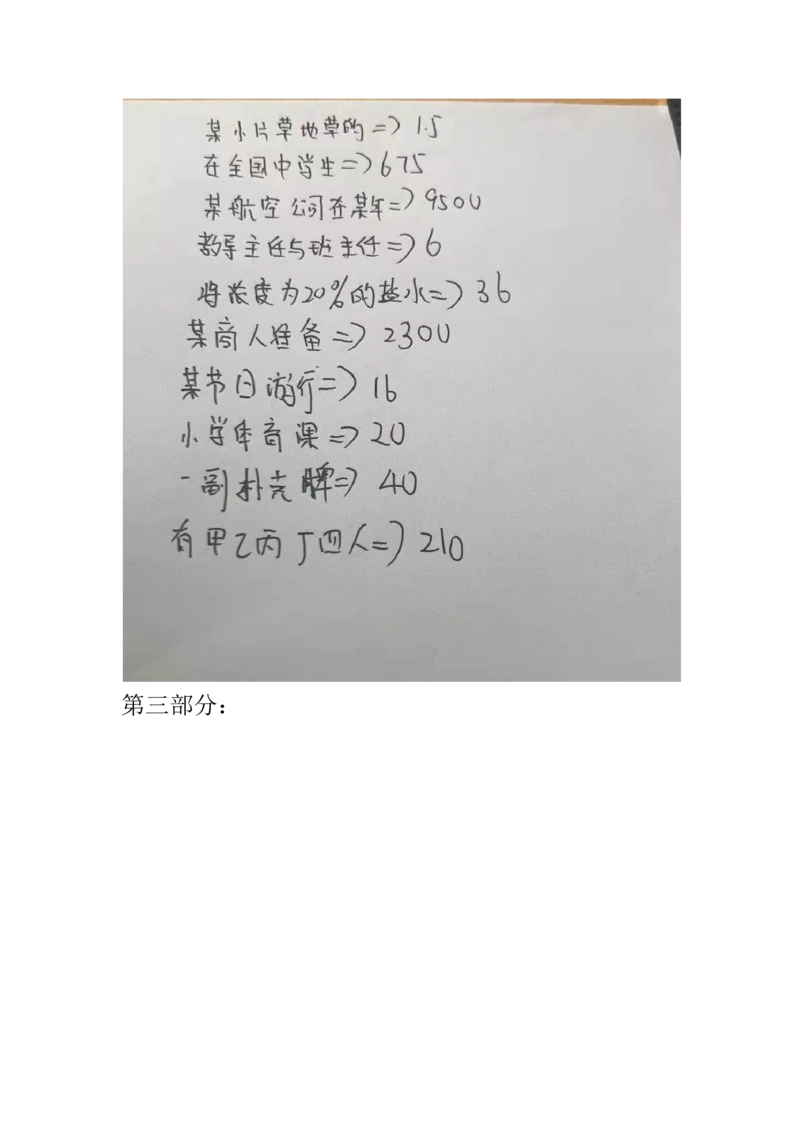 某小片草地草的=>1.5
在全国中学生=>675
某航空公司在某年=>9500
教导主任与班主任=>6
将浓度为20%的盐水=>36
某商人准备=>2300
某节日游行=>16
小学体育课=>20
一副朴克牌=>40
有甲乙丙丁四人=>210
第三部分：